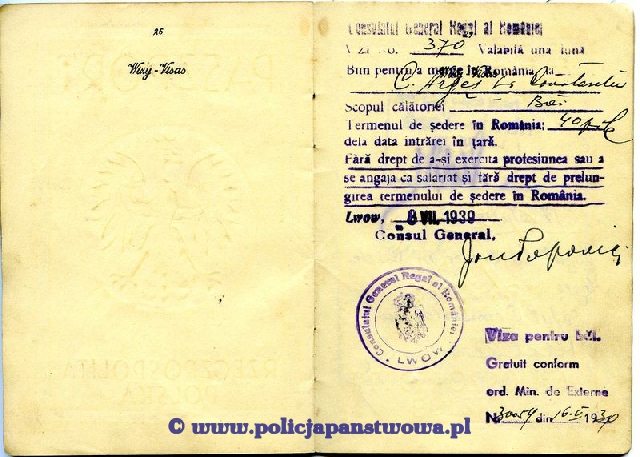 25
Wizy-Visas
Consulatul General Regal al României
Viza No. 370 Valabilă una lună
Bun pentru a merge în România, la
C. Argeș Constanța
Scopul călătoriei Băi
Termenul de ședere în România: 40 zile
dela data intrărei în țară.
Fără drept de a-și exercita profesiunea sau a
se angaja ca salariat și fără drept de prelun-
girea termenului de ședere în România.
Lwow, 8 VII. 1939
Consul General,
Consulatul General Regal al României
LWOW
Viza pentru băi.
Gratuit conform
ord. Min. de Externe
No din 16 193
RZECZPOSPOLITA
POLSKA
© www.policjapanstwowa.pl